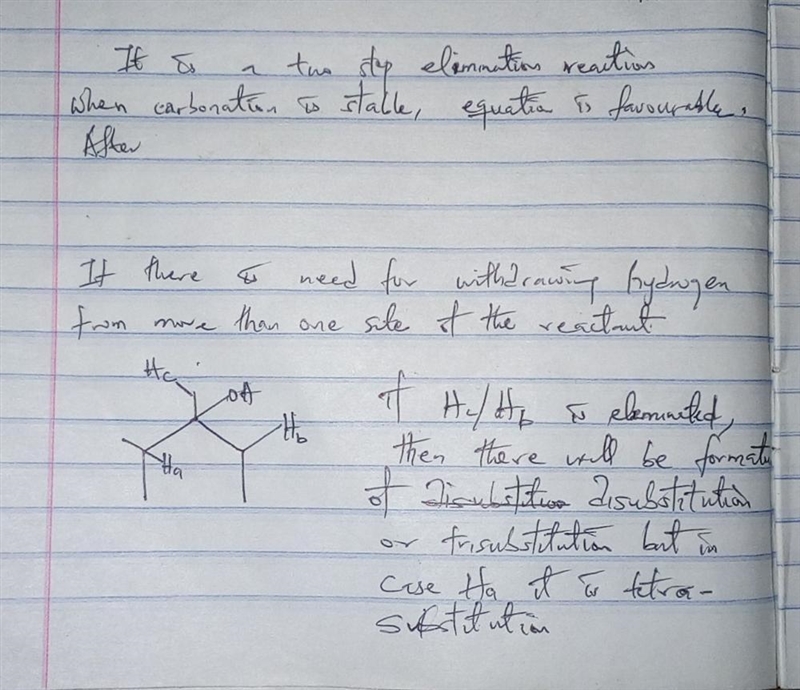 It is a two step elimination reaction
when carbonation is stable, equation is favourable,
After
If there is need for withdrawing hydrogen
from more than one site of the reactant
Hc
OH
Hb
Ha
if Hc/Hb is eliminated,
then there will be formatn
of disubstitution disubstitution
or trisubstitution but in
case Ha it is tetra-
substitution